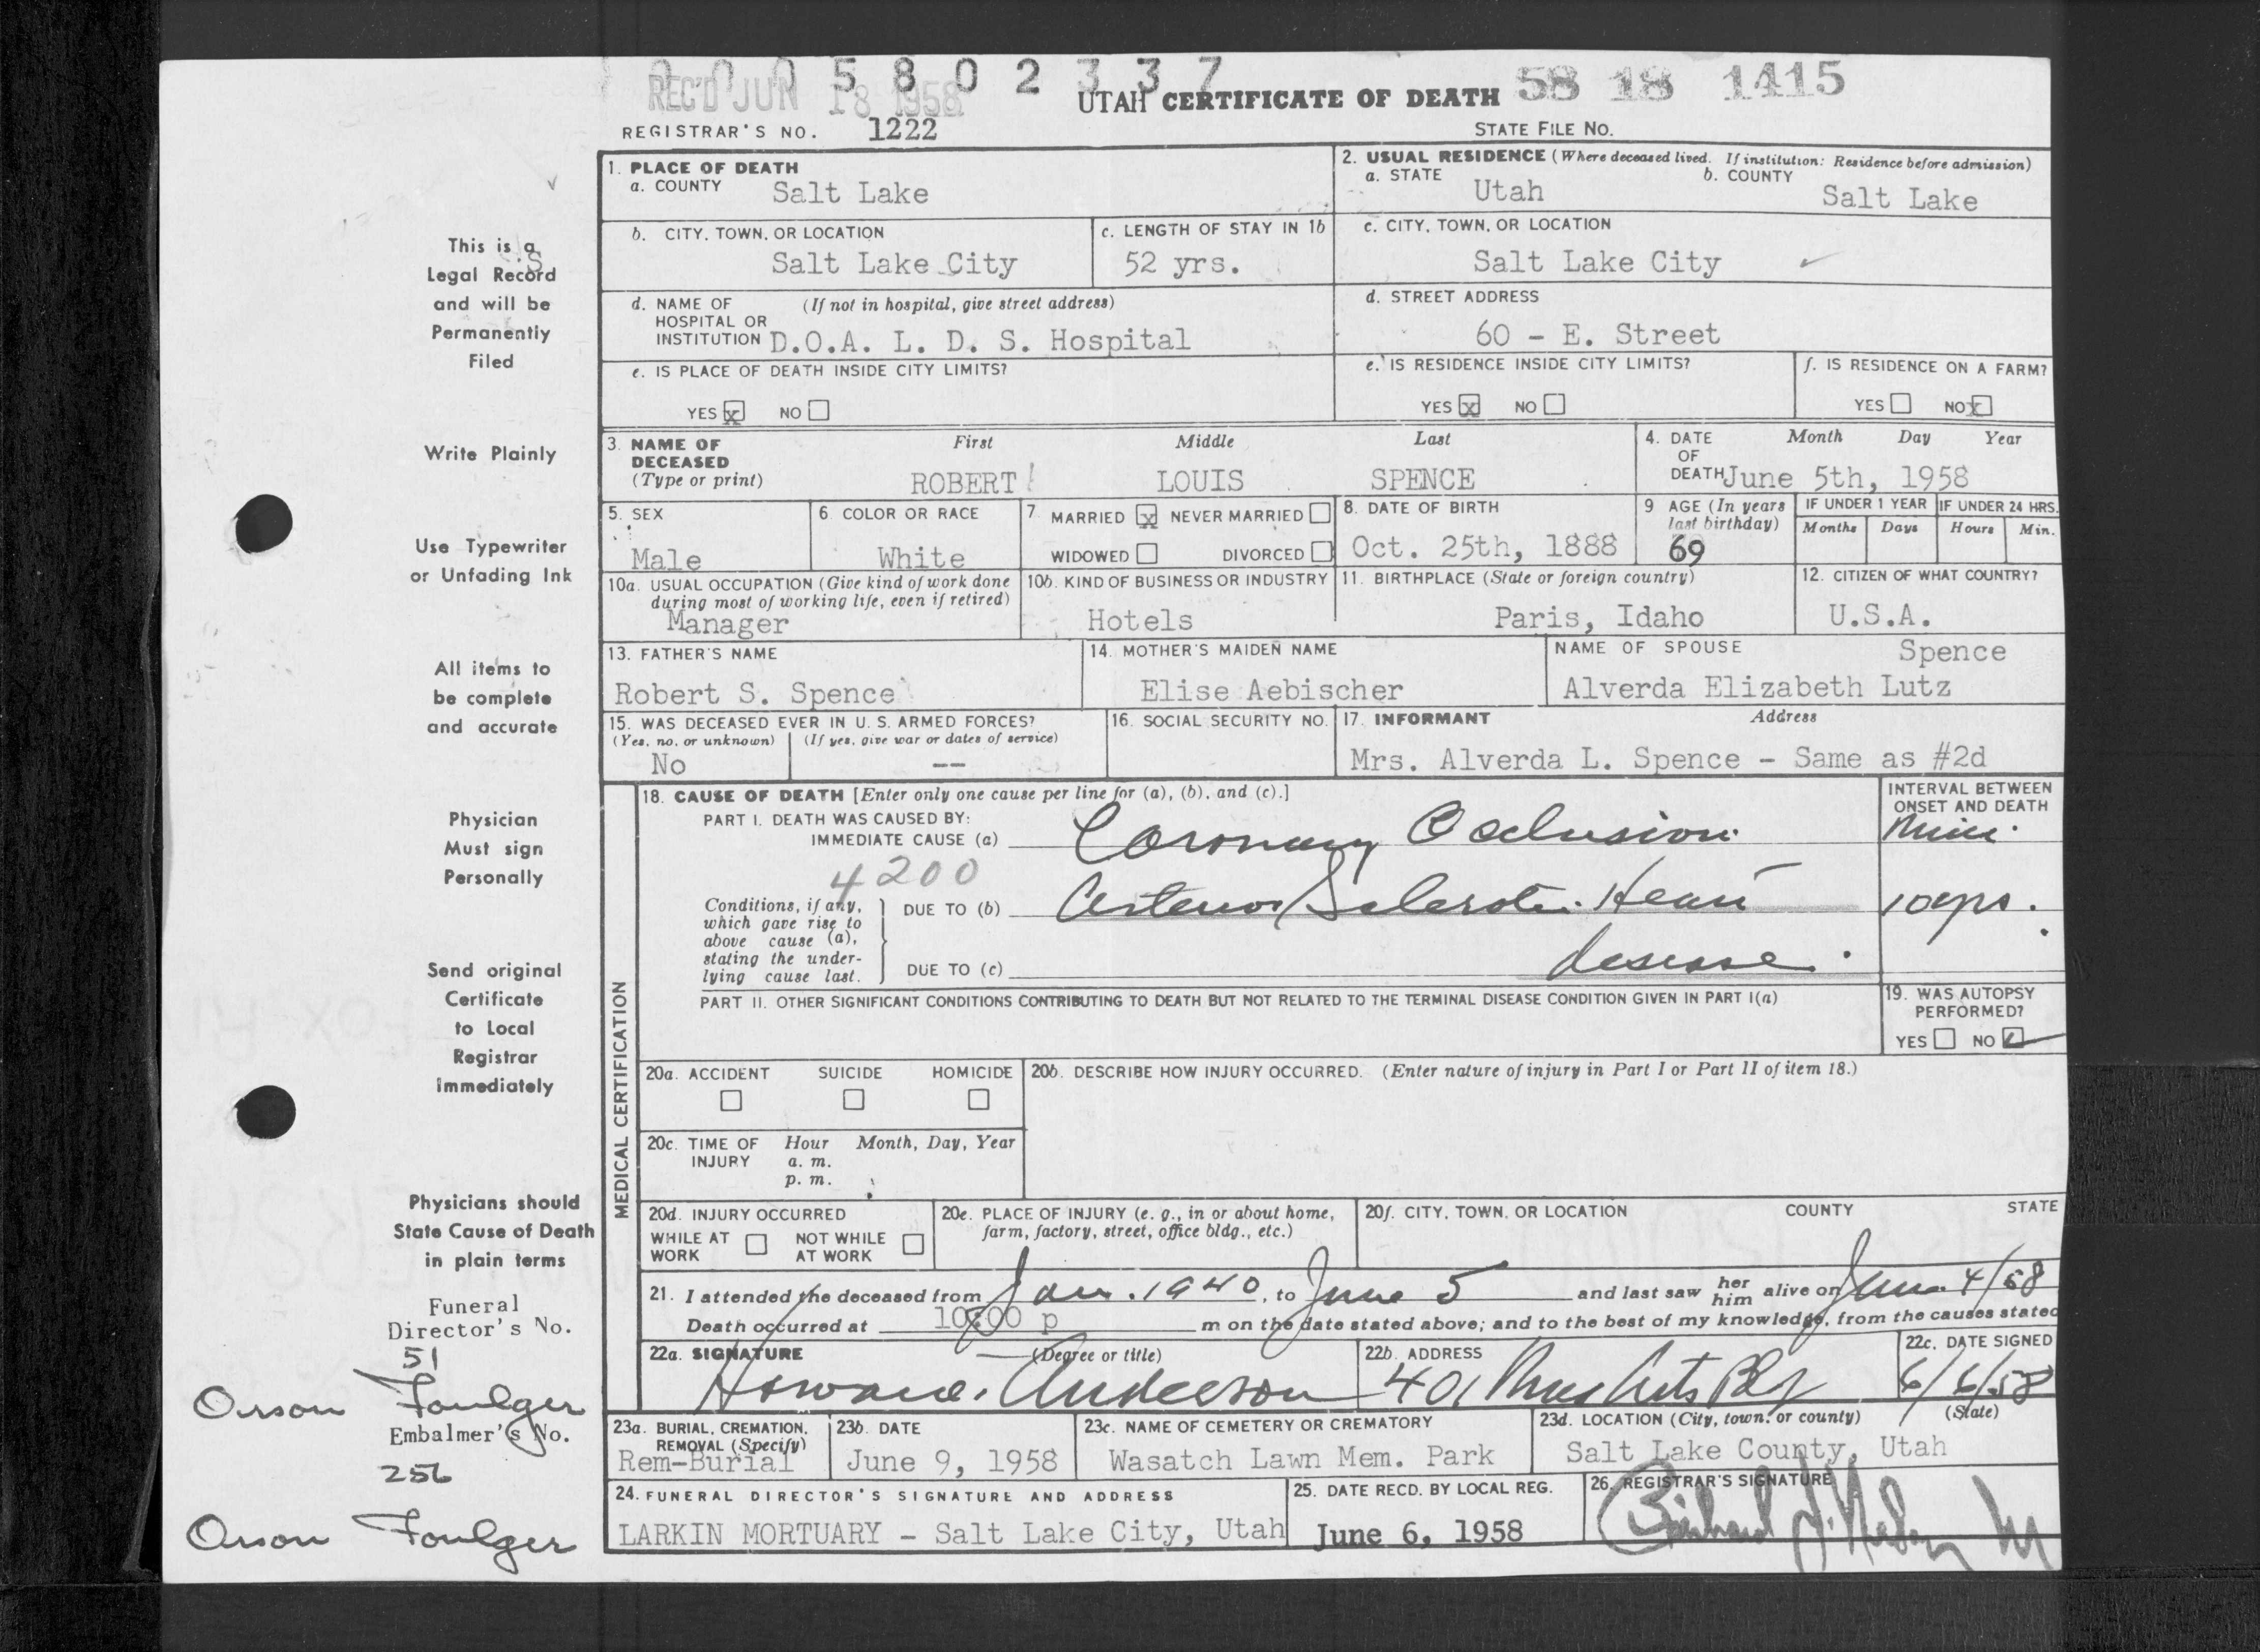 0 0 0 5 8 0 2 3 3 7
REC'D JUN 18 1958
UTAH CERTIFICATE OF DEATH
58 18 1415
REGISTRAR'S NO. 1222
STATE FILE NO.
1. PLACE OF DEATH
a. COUNTY Salt Lake
2. USUAL RESIDENCE (Where deceased lived. If institution: Residence before admission)
a. STATE Utah b. COUNTY Salt Lake
b. CITY, TOWN, OR LOCATION
Salt Lake City
c. LENGTH OF STAY IN 1b
52 yrs.
c. CITY, TOWN, OR LOCATION
Salt Lake City
d. NAME OF HOSPITAL OR INSTITUTION (If not in hospital, give street address)
D.O.A. L. D. S. Hospital
d. STREET ADDRESS
60 - E. Street
e. IS PLACE OF DEATH INSIDE CITY LIMITS?
YES x NO
e. IS RESIDENCE INSIDE CITY LIMITS?
YES x NO
f. IS RESIDENCE ON A FARM?
YES NO x
3. NAME OF DECEASED (Type or print)
First Middle Last
ROBERT LOUIS SPENCE
4. DATE OF DEATH Month Day Year
June 5th, 1958
5. SEX
Male
6. COLOR OR RACE
White
7. MARRIED x NEVER MARRIED
WIDOWED DIVORCED
8. DATE OF BIRTH
Oct. 25th, 1888
9 AGE (In years last birthday)
69
IF UNDER 1 YEAR
Months Days
IF UNDER 24 HRS.
Hours Min.
10a. USUAL OCCUPATION (Give kind of work done during most of working life, even if retired)
Manager
10b. KIND OF BUSINESS OR INDUSTRY
Hotels
11. BIRTHPLACE (State or foreign country)
Paris, Idaho
12. CITIZEN OF WHAT COUNTRY?
U.S.A.
13. FATHER'S NAME
Robert S. Spence
14. MOTHER'S MAIDEN NAME
Elise Aebischer
NAME OF SPOUSE Spence
Alverda Elizabeth Lutz
15. WAS DECEASED EVER IN U. S. ARMED FORCES?
(Yes, no, or unknown) (If yes, give war or dates of service)
No --
16. SOCIAL SECURITY NO.
17. INFORMANT Address
Mrs. Alverda L. Spence - Same as #2d
MEDICAL CERTIFICATION
18. CAUSE OF DEATH [Enter only one cause per line for (a), (b), and (c).]
PART I. DEATH WAS CAUSED BY:
IMMEDIATE CAUSE (a) Coronary Occlusion
INTERVAL BETWEEN ONSET AND DEATH
Min.
4200
Conditions, if any, which gave rise to above cause (a), stating the underlying cause last.
DUE TO (b) Arterio Sclerotic Heart
10 yrs.
disease.
DUE TO (c)
PART II. OTHER SIGNIFICANT CONDITIONS CONTRIBUTING TO DEATH BUT NOT RELATED TO THE TERMINAL DISEASE CONDITION GIVEN IN PART I(a)
19. WAS AUTOPSY PERFORMED?
YES NO ✓
20a. ACCIDENT SUICIDE HOMICIDE
20b. DESCRIBE HOW INJURY OCCURRED. (Enter nature of injury in Part I or Part II of item 18.)
20c. TIME OF INJURY Hour Month, Day, Year
a. m.
p. m.
20d. INJURY OCCURRED
WHILE AT WORK NOT WHILE AT WORK
20e. PLACE OF INJURY (e. g., in or about home, farm, factory, street, office bldg., etc.)
20f. CITY, TOWN, OR LOCATION COUNTY STATE
21. I attended the deceased from Jan. 1940, to June 5 and last saw her him alive on June 4/58
Death occurred at 10:00 p m on the date stated above; and to the best of my knowledge, from the causes stated
22a. SIGNATURE (Degree or title)
Howard Anderson
22b. ADDRESS
401
22c. DATE SIGNED
6/6/58
23a. BURIAL, CREMATION, REMOVAL (Specify)
Rem-Burial
23b. DATE
June 9, 1958
23c. NAME OF CEMETERY OR CREMATORY
Wasatch Lawn Mem. Park
23d. LOCATION (City, town, or county) (State)
Salt Lake County, Utah
24. FUNERAL DIRECTOR'S SIGNATURE AND ADDRESS
LARKIN MORTUARY - Salt Lake City, Utah
25. DATE RECD. BY LOCAL REG.
June 6, 1958
26. REGISTRAR'S SIGNATURE
This is a
Legal Record
and will be
Permanently
Filed
Write Plainly
Use Typewriter
or Unfading Ink
All items to
be complete
and accurate
Physician
Must sign
Personally
Send original
Certificate
to Local
Registrar
immediately
Physicians should
State Cause of Death
in plain terms
Funeral
Director's No.
51
Orson Foulger
Embalmer's No.
256
Orson Foulger